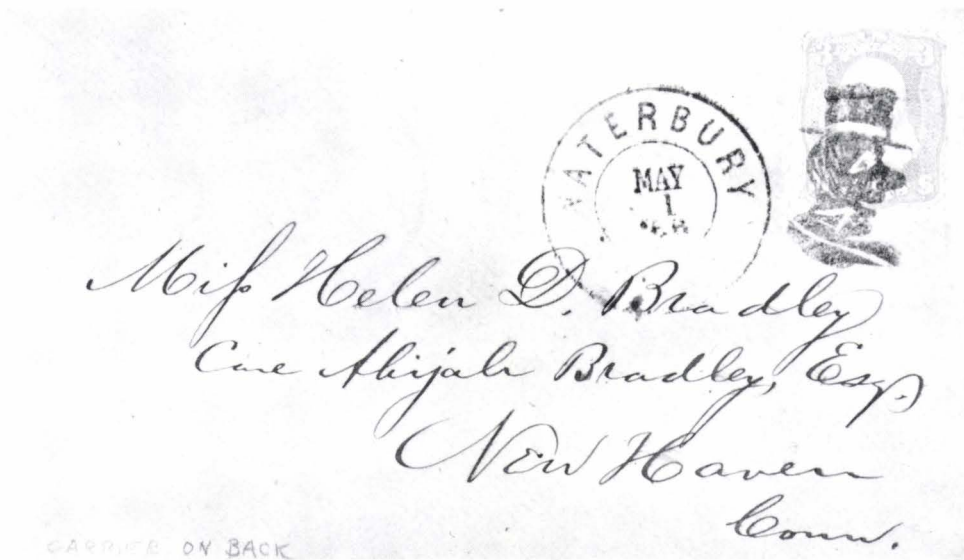 WATERBURY
MAY
1
Miss Helen D. Bradley
Care Abijah Bradley, Esq.
New Haven
Conn.
CARRIER ON BACK